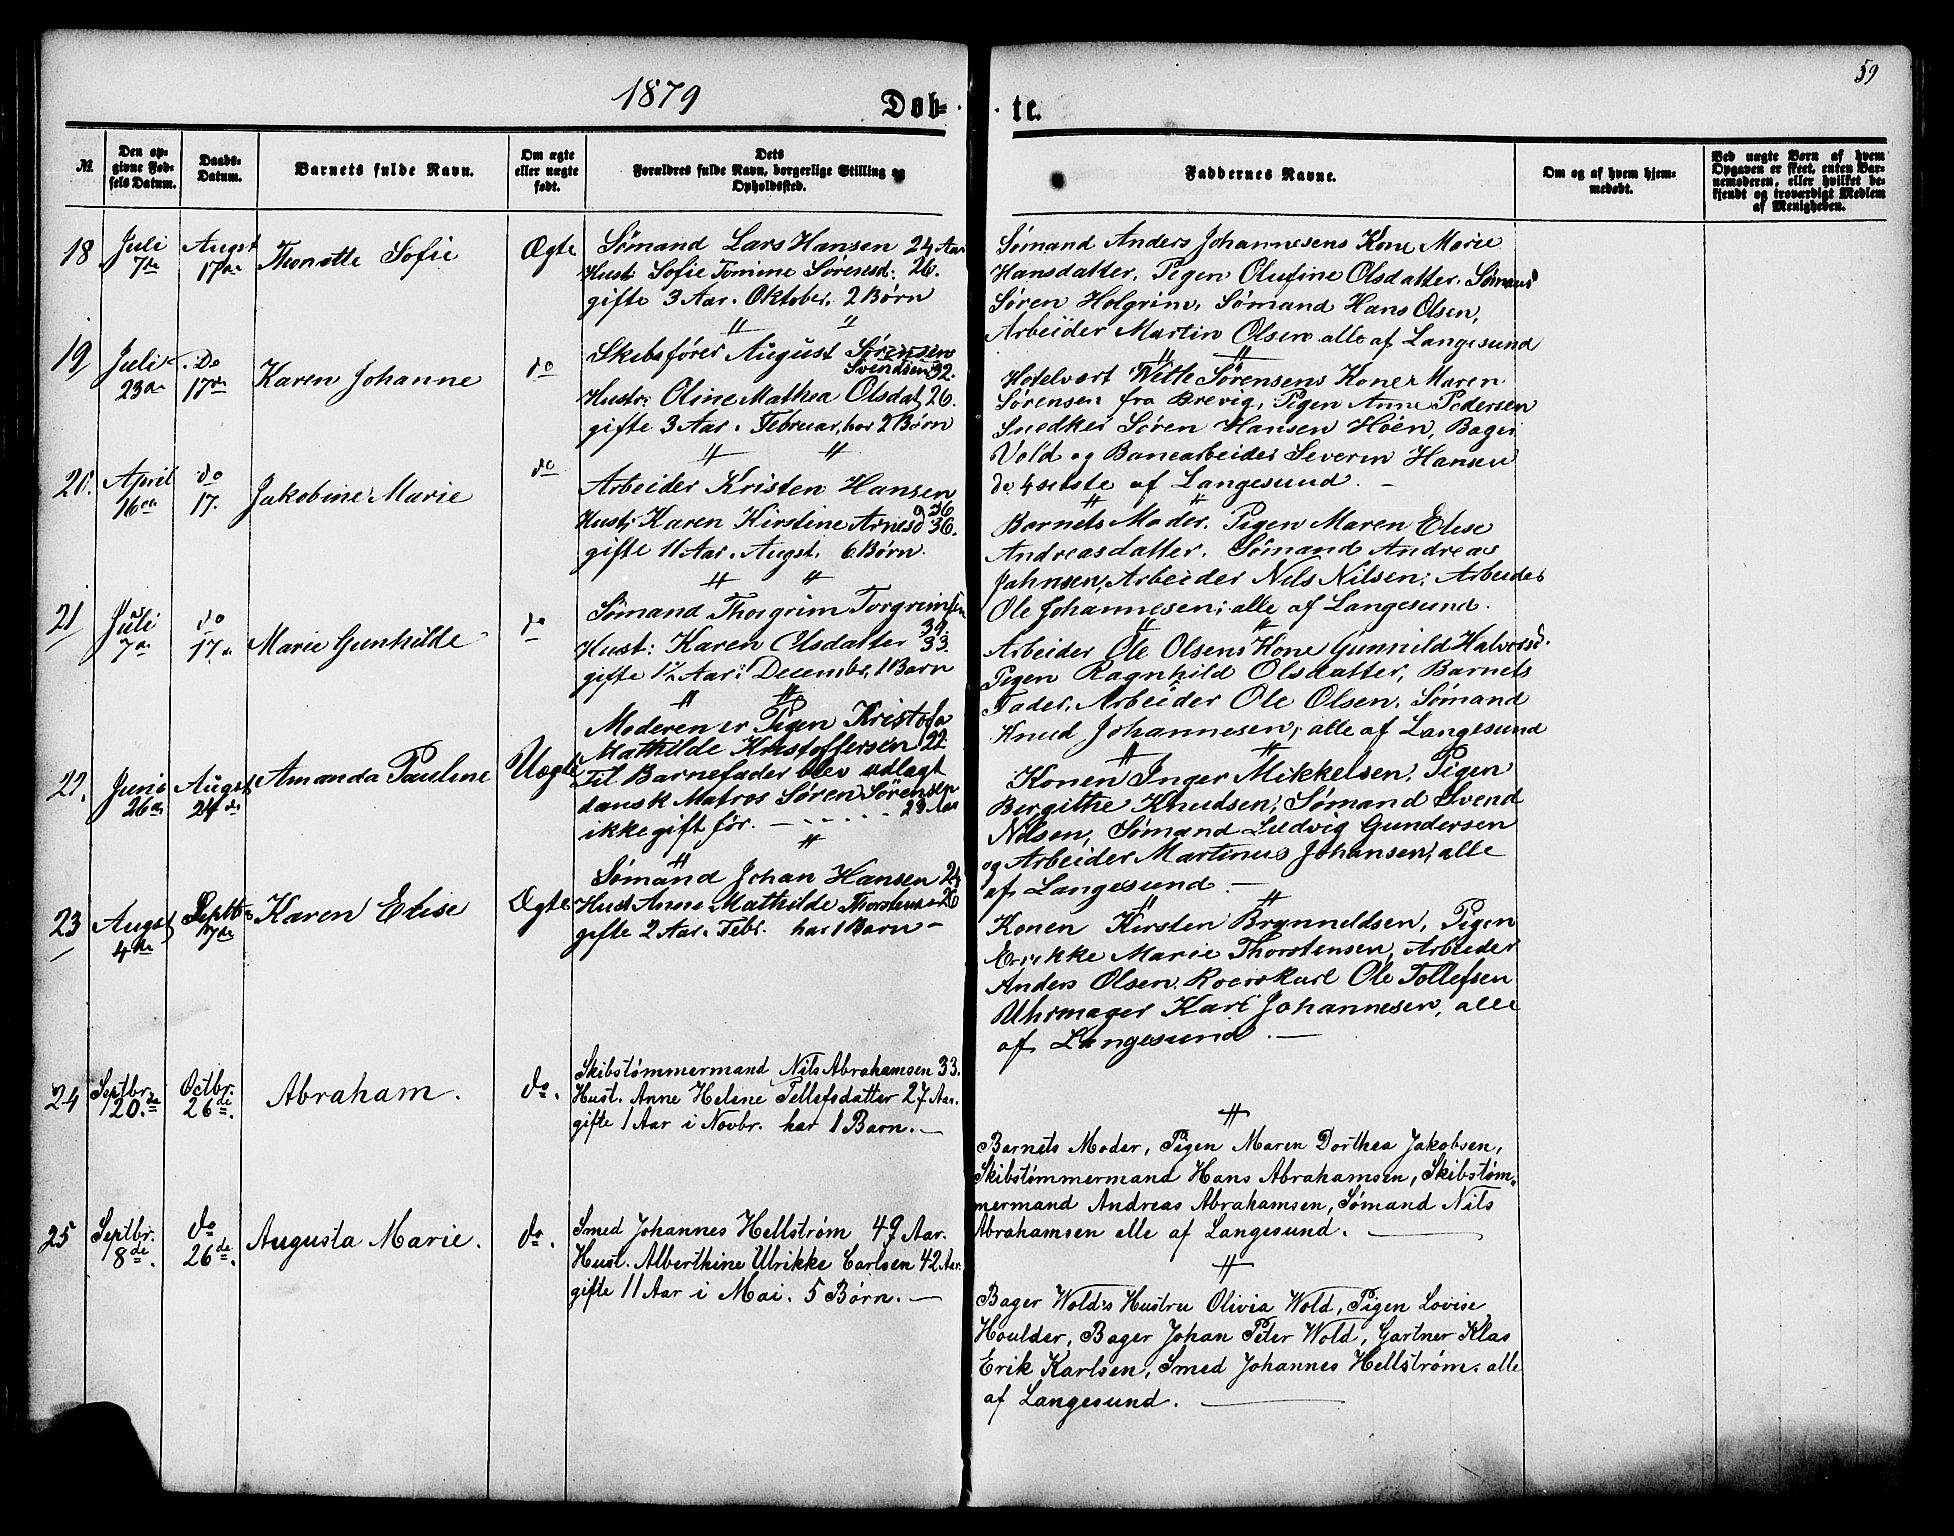 59
1879
Døb-
te.
№
Den op-
givne Fød-
sels Datum.
Daabs-
Datum.
Barnets fulde Navn.
Om ægte
eller uægte
født.
Dets
Forældres fulde Navn, borgerlige Stilling og
Opholdssted.
Faddernes Navne.
Om og af hvem hjem-
medøbt.
Ved uægte Børn af hvem
Opgaven er skeet, enten Bar-
nemoderen, eller hvilket be-
kjendt og troværdigt Medlem
af Menigheden.
18
Juli
7de
Augst
17de
Thonette Sofie
Ægte
Sømand Lars Hansen 24 Aar
Hust: Sofie Tomine Sørensd: 26.
gifte 3 Aar. Oktober, 2 Børn
Sømand Anders Johannesens Kone Marie
Hansdatter, Pigen Olufine Olsdatter, Sømand
Søren Holgrim, Sømand Hans Olsen,
Arbeider Martin Olsen alle af Langesund
19
Juli
23de
Do
17de
Karen Johanne
do
Skibsfører August Sørensen
Svendsen 32.
Hustr: Oline Mathea Olsdat 26.
gifte 3 Aar. Februar, har 2 Børn
Hotelvært Wette Sørensens Kone Maren
Sørensen fra Brevig, Pigen Anne Pedersen
Snedker Søren Hansen Høen, Bager
Vold og Banearbeider Severin Hansen
de 4 sidste af Langesund.
20.
April
16de
do
17.
Jakobine Marie
do
Arbeider Kristen Hansen
36
Hust: Karen Kirstine Arnesd 36.
gifte 11 Aar. Augst. 6 Børn.
Barnets Moder, Pigen Maren Elise
Andreasdatter, Sømand Andreas
Jahnsen, Arbeider Nils Nilsen, Arbeider
Ole Johannesen; alle af Langesund.
21
Juli
7de
do
17de
Marie Gunhilde
do
Sømand Thorgrim Torgrimsen
39.
Hust: Karen Olsdatter 33
gifte 1½ Aar: December, 1 Barn
Arbeider Ole Olsens Kone Gunnild Halvorsd.
Pigen Ragnhild Olsdatter, Barnets
Fader, Arbeider Ole Olsen, Sømand
Knud Johannesen, alle af Langesund
22.
Juni
26de
Augst
24de
Amanda Pauline
Uægte
Moderen er Pigen Kristofa
Mathilde Kristoffersen 22
Til Barnefader blev udlagt
dansk Matros Søren Sørensen
28 Aar
ikke gift før.
Konen Inger Mikkelsen, Pigen
Bergithe Knudsen, Sømand Svend
Nilsen, Sømand Ludvig Gundersen
og Arbeider Martinus Johansen, alle
af Langesund.
23
Augst
4de
Septbr
7de
Karen Elise
Ægte
Sømand Johan Hansen 24
Hust Anne Mathilde Thorstens 26
gifte 2 Aar. Febr. har 1 Barn
Konen Kirsten Brynneldsen, Pigen
Marie Thorstensen, Arbeider
Anders Olsen, Roerskarl Ole Tollefsen
Uhrmager Karl Johannesen, alle
af Langesund.
24
Septbr.
20.de
Octbr.
26de.
Abraham.
do.
Skibstømmermand Nils Abrahamsen 33.
Hust. Anne Helene Tellefsdatter 27 Aar.
gifte 1 Aar i Novbr. har 1 Barn.
Barnets Moder, Pigen Maren Dorthea Jakobsen,
Skibstømmermand Hans Abrahamsen, Skibstøm-
mermand Andreas Abrahamsen, Sømand Nils
Abrahamsen alle af Langesund.
25
Septbr.
8de.
do
26de.
Augusta Marie.
do.
Smed Johannes Hellstrøm 49 Aar.
Hust. Alberthine Ulrikke Carlsen 42 Aar.
gifte 11 Aar i Mai. 5 Børn.
Bager Wold's Hustru Olivia Wold, Pigen Lovise
Houlder, Bager Johan Peter Wold, Gartner Klas
Erik Karlsen, Smed Johannes Hellstrøm. alle
af Langesund.